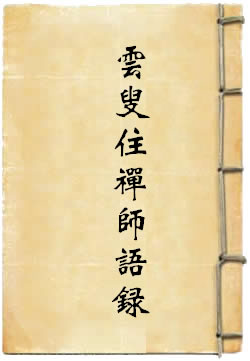 雲叟住禪師語録